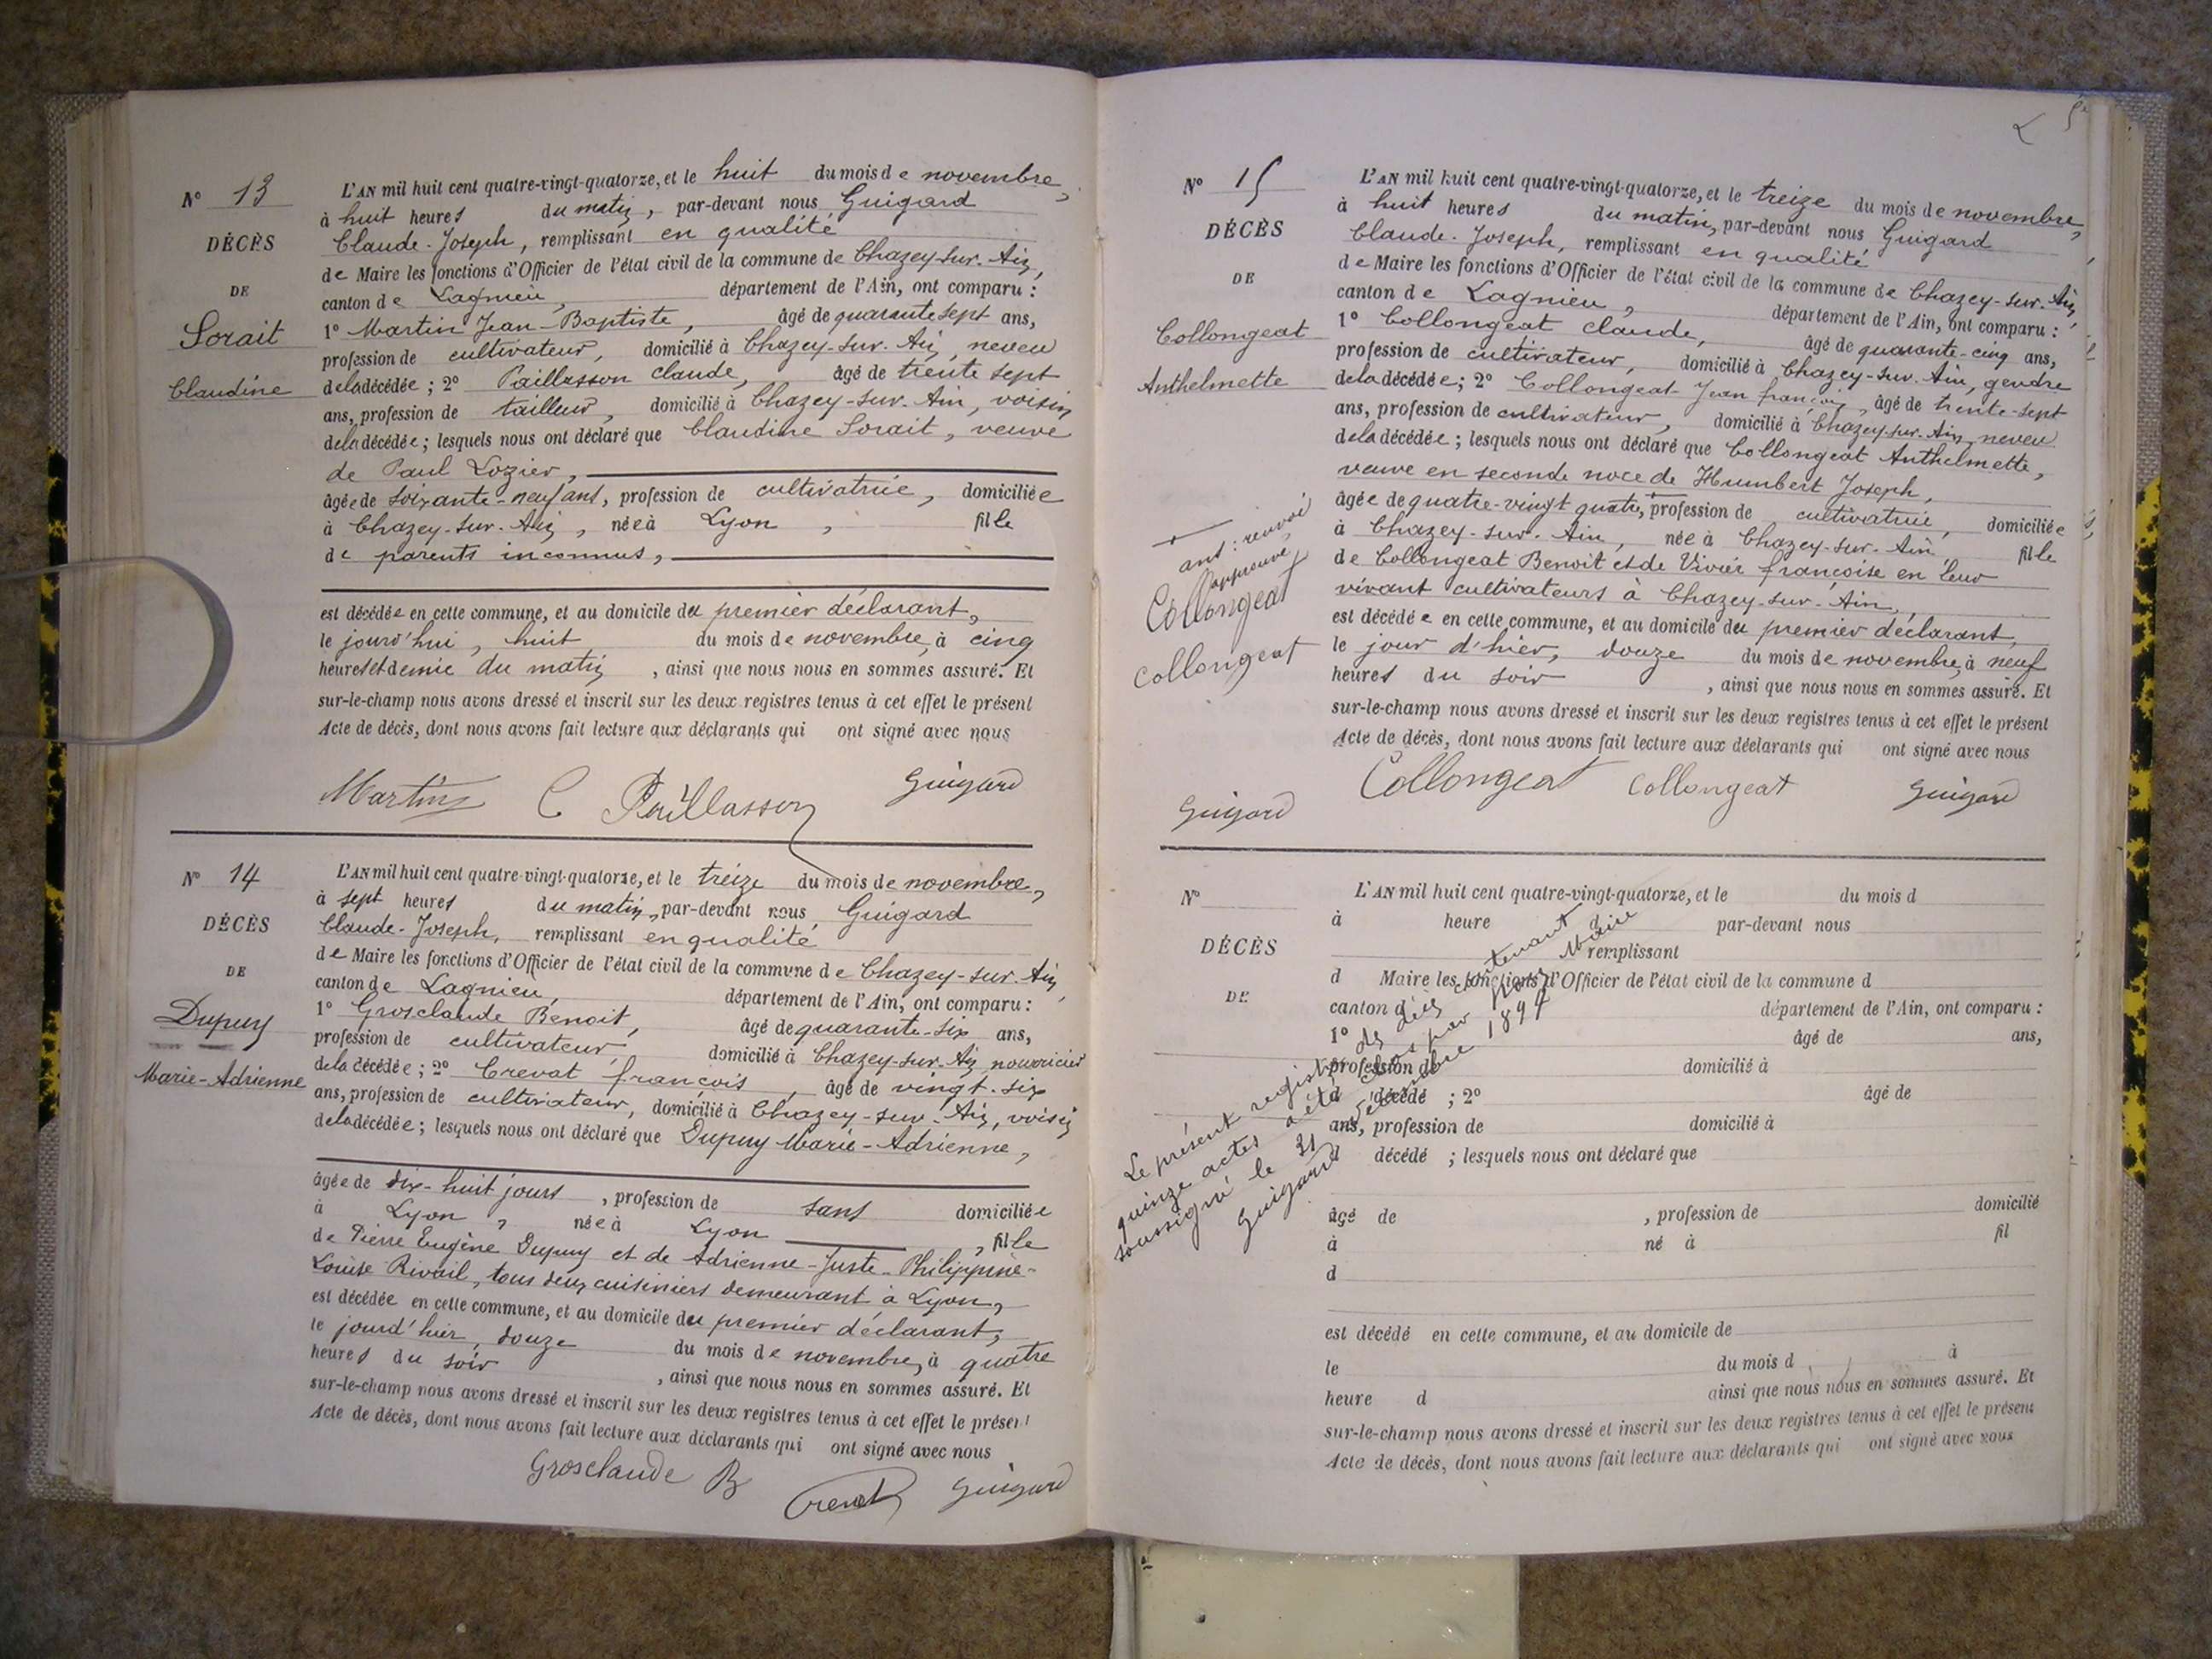 N° 13
DÉCÈS
DE
Sorait
Claudine
L'AN mil huit cent quatre-vingt-quatorze, et le huit du mois de novembre,
à huit heures du matin, par-devant nous Guigard
Claude-Joseph, remplissant en qualité
de Maire les fonctions d'Officier de l'état civil de la commune de Chazey-sur-Ain,
canton de Lagnieu, département de l'Ain, ont comparu :
1° Martin Jean-Baptiste, âgé de quarante sept ans,
profession de cultivateur, domicilié à Chazey-sur-Ain, neveu
de la décédée ; 2° Paillasson Claude, âgé de trente sept
ans, profession de tailleur, domicilié à Chazey-sur-Ain, voisin
de la décédée ; lesquels nous ont déclaré que Claudine Sorait, veuve
de Paul Lozier,
âgée de soixante-neuf ans, profession de cultivatrice, domiciliée
à Chazey-sur-Ain, née à Lyon, fille
de parents inconnus,
est décédée en cette commune, et au domicile du premier déclarant,
le jourd'hui, huit du mois de novembre, à cinq
heures et demie du matin, ainsi que nous nous en sommes assuré. Et
sur-le-champ nous avons dressé et inscrit sur les deux registres tenus à cet effet le présent
Acte de décès, dont nous avons fait lecture aux déclarants qui ont signé avec nous
Martin C Paillasson Guigard
N° 14
DÉCÈS
DE
Dupuy
Marie-Adrienne
L'AN mil huit cent quatre-vingt-quatorze, et le treize du mois de novembre,
à sept heures du matin, par-devant nous Guigard
Claude-Joseph, remplissant en qualité
de Maire les fonctions d'Officier de l'état civil de la commune de Chazey-sur-Ain,
canton de Lagnieu, département de l'Ain, ont comparu :
1° Grosclaude Benoit, âgé de quarante-six ans,
profession de cultivateur, domicilié à Chazey-sur-Ain nourricier
de la décédée ; 2° Crevat françois, âgé de vingt-six
ans, profession de cultivateur, domicilié à Chazey-sur-Ain, voisin
de la décédée ; lesquels nous ont déclaré que Dupuy Marie-Adrienne,
âgée de dix-huit jours, profession de sans domiciliée
à Lyon, née à Lyon, fille
de Pierre Eugène Dupuy et de Adrienne-Juste-Philippine-
Louise Rivail, tous deux cuisiniers demeurant à Lyon,
est décédée en cette commune, et au domicile du premier déclarant,
le jourd'hier, douze du mois de novembre, à quatre
heures du soir, ainsi que nous nous en sommes assuré. Et
sur-le-champ nous avons dressé et inscrit sur les deux registres tenus à cet effet le présent
Acte de décès, dont nous avons fait lecture aux déclarants qui ont signé avec nous
Grosclaude B Crevat Guigard
N° 15
DÉCÈS
DE
Collongeat
Anthelmette
L'AN mil huit cent quatre-vingt-quatorze, et le treize du mois de novembre,
à huit heures du matin, par-devant nous Guigard
Claude-Joseph, remplissant en qualité
de Maire les fonctions d'Officier de l'état civil de la commune de Chazey-sur-Ain,
canton de Lagnieu, département de l'Ain, ont comparu :
1° Collongeat Claude, âgé de quarante-cinq ans,
profession de cultivateur, domicilié à Chazey-sur-Ain, gendre
de la décédée ; 2° Collongeat Jean françois, âgé de trente-sept
ans, profession de cultivateur, domicilié à Chazey-sur-Ain, neveu
de la décédée ; lesquels nous ont déclaré que Collongeat Anthelmette,
veuve en seconde noce de Humbert Joseph,
âgée de quatre-vingt quatre, profession de cultivatrice, domiciliée
à Chazey-sur-Ain, née à Chazey-sur-Ain fille
de Collongeat Benoit et de Vivier françoise en leur
vivant cultivateurs à Chazey-sur-Ain,
est décédée en cette commune, et au domicile du premier déclarant,
le jour d'hier, douze du mois de novembre, à neuf
heures du soir, ainsi que nous nous en sommes assuré. Et
sur-le-champ nous avons dressé et inscrit sur les deux registres tenus à cet effet le présent
Acte de décès, dont nous avons fait lecture aux déclarants qui ont signé avec nous
Collongeat Collongeat Guigard
ans : renvoi
approuvé
Collongeat
Collongeat
Guigard
N°
DÉCÈS
DE
L'AN mil huit cent quatre-vingt-quatorze, et le du mois d
à heure d par-devant nous
remplissant
d Maire les fonctions d'Officier de l'état civil de la commune d
canton d département de l'Ain, ont comparu :
1° âgé de ans,
profession de domicilié à
d décédé ; 2° âgé de
ans, profession de domicilié à
d décédé ; lesquels nous ont déclaré que
âgé de , profession de domicilié
à né à fil
d
est décédé en cette commune, et au domicile de
le du mois d , à
heure d ainsi que nous nous en sommes assuré. Et
sur-le-champ nous avons dressé et inscrit sur les deux registres tenus à cet effet le présent
Acte de décès, dont nous avons fait lecture aux déclarants qui ont signé avec nous
Le présent registre des décès contenant
quinze actes a été clos par nous Maire
soussigné le 31 décembre 1894
Guigard